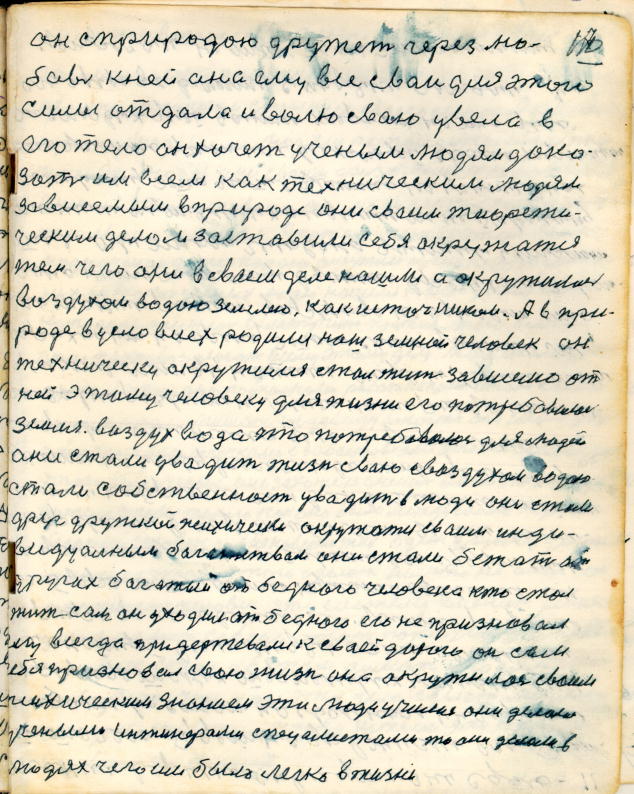 он сприродою дружет через лю- 176
бовь кней она ему все сваи для этого
силы отдала и волю сваю увела в
его тело он хочет ученым людям дока-
зать им всем как техническим людям
зависемым в природе они своим теорети-
ческим делом заставили себя окружатся
тем чего они в сваем деле нашли а окружился
воздухом водою землею, как источником. А в при-
роде в условиех родили наш земной человек он
технически окружился стал жить зависемо от
ней этому человеку для жизни его потребовалось
земля. воздух вода это потребовалось для людей
они стали увадить жизн сваю с воздухом водою
стали собственност увадить в люди они стали
друг дружкой психически окружати сваим инди-
видуалным багатством они стали бежат от
других багатый от бедного человека кто стал
жить сам он уходил от бедного его не признавал
ему всегда придержевали к сваей дороге он сам
себя признавал свою жизн она окружилася сваим
психическим знанием эти люди учился они делали
учеными инжинерами специалистами то они делали в
людях чего им было легко в жизни